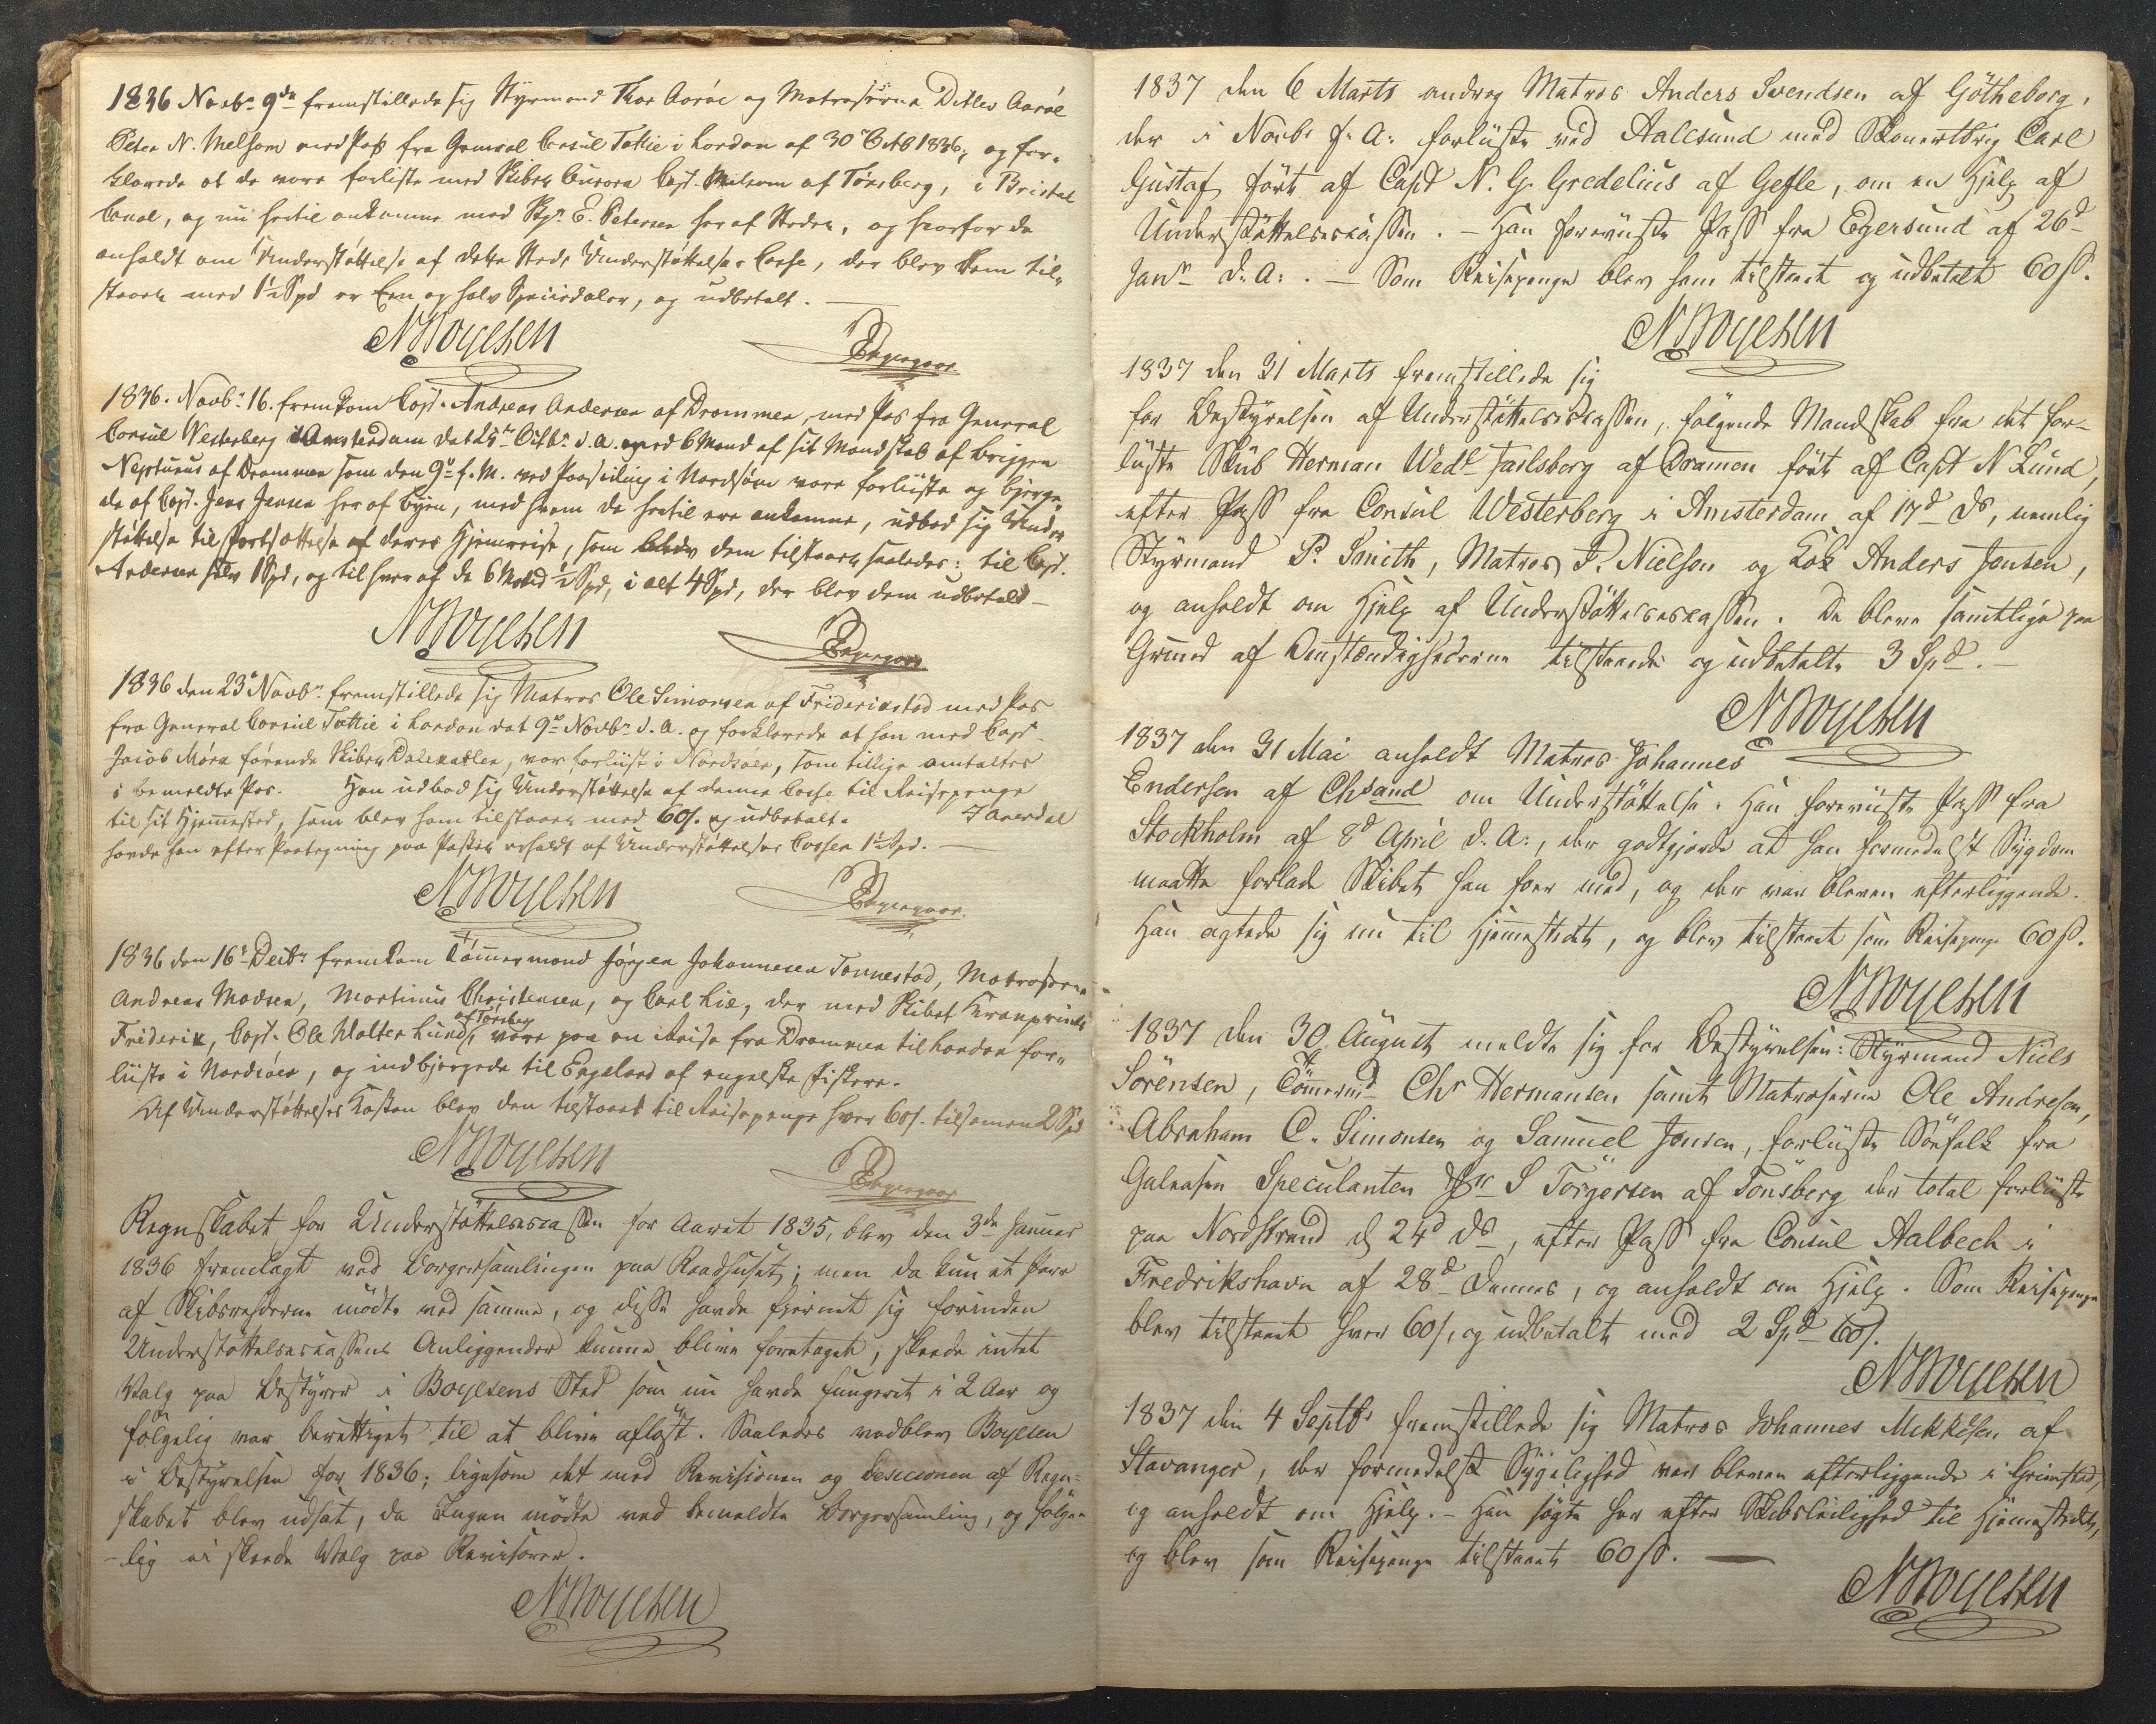 1836 Novbr 9de fremstillede sig Styrmand Thor Aarøe og Matroserne Ditlev Aarøe
Peter N. Melsom med Pass fra General Consul Tottie i London af 30te Octb 1836, og for-
klarede at de vare forliste med Skibet Aurora Capt. Melsom af Tønsberg, i Bristol
Canal, og nu hertil ankomne med Skpr. E. Petersen her af Staden, og hvorfor de
anholdt om Understøttelse af dette Steds Understøttelses Casse, der blev dem til-
staaet med 1½ Spd er Een og halv Speciedaler, og udbetalt. —
N Boyesen
1836. Novbr 16. fremkom Capt. Andreas Andersen af Drammen, med Pas fra General
Consul Westerberg i Amsterdam dat 25de Octbr d. A. med 6 Mand af sit Mandskab af Briggen
Neptunus af Drammen som den 9de f. M. ved Paaseiling i Nordsøen vare forliste og bjerge-
de af Capt. Jens Jensen her af Byen, med hvem de hertil ere ankomne, udbad sig Under-
støttelse til Fortsættelse af deres Hjemreise, som blev dem tilstaaet saaledes: til Capt.
Andersen selv 1 Spd, og til hver af de 6 Mand ½ Spd, i alt 4 Spd, der blev dem udbetalt —
N Boyesen
1836 den 23de Novbr fremstillede sig Matros Ole Simonsen af Friderikstad med Pas
fra General Consul Tottie i London dat 9de Novbr d. A. og forklarede at han med Capt.
Jacob Mørk førende Skibet Dalekarlen, var forliist i Nordsøen, som tillige omtaltes
i bemeldte Pas. Han udbad sig Understøttelse af denne Casse til Reisepenge
til sit Hjemmested, som blev ham tilstaaet med 60 s. og udbetalt.
havde han efter Paategning paa Passet erholdt af Understøttelses Cassen 1½ Spd. —
N Boyesen
1836 den 16de Decbr fremkom Tømmermand Jørgen Johannesen Tonnestad, Matroserne
Andreas Madsen, Martinus Christensen, og Carl Lie, der med Skibet Kronprinds
af Tønsberg
Friderik, Capt. Ole Wolter Lund, vare paa en Reise fra Drammen til London for-
liiste i Nordsøen, og indbjergede til Engeland af engelske Fiskere.
Af Understøttelses Kassen blev den tilstaaet til Reisepenge hver 60 s. tilsamen 2 Spd
N Boyesen
Regnskabet for Understöttelsescassen for Aaret 1835, blev den 3de Januar
1836 fremlagt ved Borgersamlingen paa Raadhuset; men da kun et Par
af Skibsrehderne mödte ved samme, og disse havde fjernet sig forinden
Understöttelsescassens Anliggender kunne blive foretaget, skeede intet
Valg paa Bestyrer i Boyesens Sted som nu havde fungeret i 2 Aar og
fölgelig var berettiget til at blive aflöst. Saaledes vedblev Boyesen
i Bestyrelsen for 1836; ligesom det med Revisionen og Decisionen af Regn-
skabet blev udsat, da Ingen mödte ved bemeldte Borgersamling, og fölge-
-lig ei skeede Valg paa Revisorer.
N Boyesen
1837 den 6 Marts androg Matros Anders Svendsen af Götheborg,
der i Novbr f. A. forliiste ved Aalesund med Skonnertbrig Carl
Gustaf fört af Capt N. G. Gredelius af Gefle, om en Hjelp af
Understöttelsescassen. — Han foreviiste Pass fra Egersund af 26d
Janr d. A. . — Som Reisepenge blev ham tilstaaet og udbetalt 60 ß.
N Boyesen
1837 den 31 Marts fremstillede sig
for Bestyrelsen af Understöttelsescassen, fölgende Mandskab fra det for-
liiste Skib Herman Wedl Jarlsberg af Dramen fört af Capt N Lund,
efter Pass fra Consul Westerberg i Amsterdam af 17d ds, nemlig
Styrmand P. Smith, Matros P. Nielsen og Kok Anders Jensen,
og anholdt om Hjelp af Understöttelsescassen. De bleve samtlige paa
Grund af Omstændighederne tilstaaede og udbetalte 3 Spd. —
N Boyesen
1837 den 31 Mai anholdt Matros Johannes
Endersen af Chsand om Understöttelse. Han foreviiste Pass fra
Stockholm af 8d April d. A., der godtgjorde at han formedelst Sygdom
maatte forlade Skibet han foer med, og der var bleven efterliggende.
Han agtede sig nu til Hjemmestedet, og blev tilstaaet som Reisepenge 60 ß.
N Boyesen
1837 den 30 August meldte sig for Bestyrelsen: Styrmand Niels
Sörensen, Tömermd Chr Hermansen samt Matroserne Ole Andresen,
Abraham C. Simonsen og Samuel Jensen, forliiste Söefolk fra
Galeasen Speculanten Skpr S Törgersen af Tönsberg der total forliiste
paa Nordstrand d 24d ds, efter Pass fra Consul Aalbech i
Fredrikshavn af 28d Dennes, og anholdt om Hjelp. Som Reisepenge
blev tilstaaet hver 60 s, og udbetalt med 2 Spd 60 s.
N Boyesen
1837 den 4 Septbr fremstillede sig Matros Johannes Mikkelsen af
Stavanger, der formedelst Sygelighed var bleven efterliggende i Grimstad,
og anholdt om Hjelp. — Han sögte her efter Skibsleilighed til Hjemmestedet,
og blev som Reisepenge tilstaaet 60 ß. —
N Boyesen